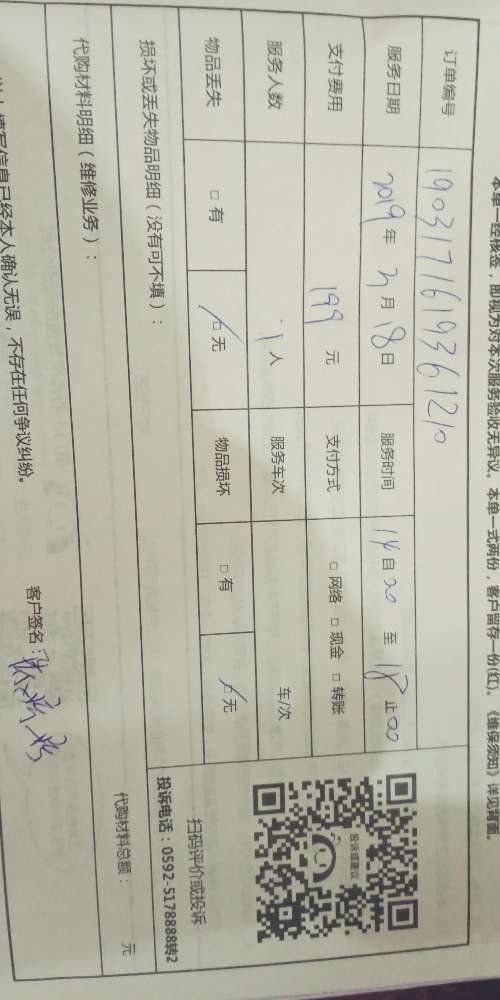 本单一经核签，即视为对本次服务验收无异议。本单一式两份，客户留存一份(红)。《维保须知》详见背面。
订单编号 1903171619361210
服务日期 2019年3月18日 服务时间 14自00至18止00
支付费用 199元 支付方式 □网络 □现金 □转账
服务人数 1人 服务车次 车/次
物品丢失 □有 □无 物品损坏 □有 □无
投诉或建议
扫码评价或投诉
投诉电话：0592-5178888转2
损坏或丢失物品明细（没有可不填）：
代购材料明细（维修业务）： 代购材料总额： 元
填写信息已经本人确认无误，不存在任何争议纠纷。 客户签名：